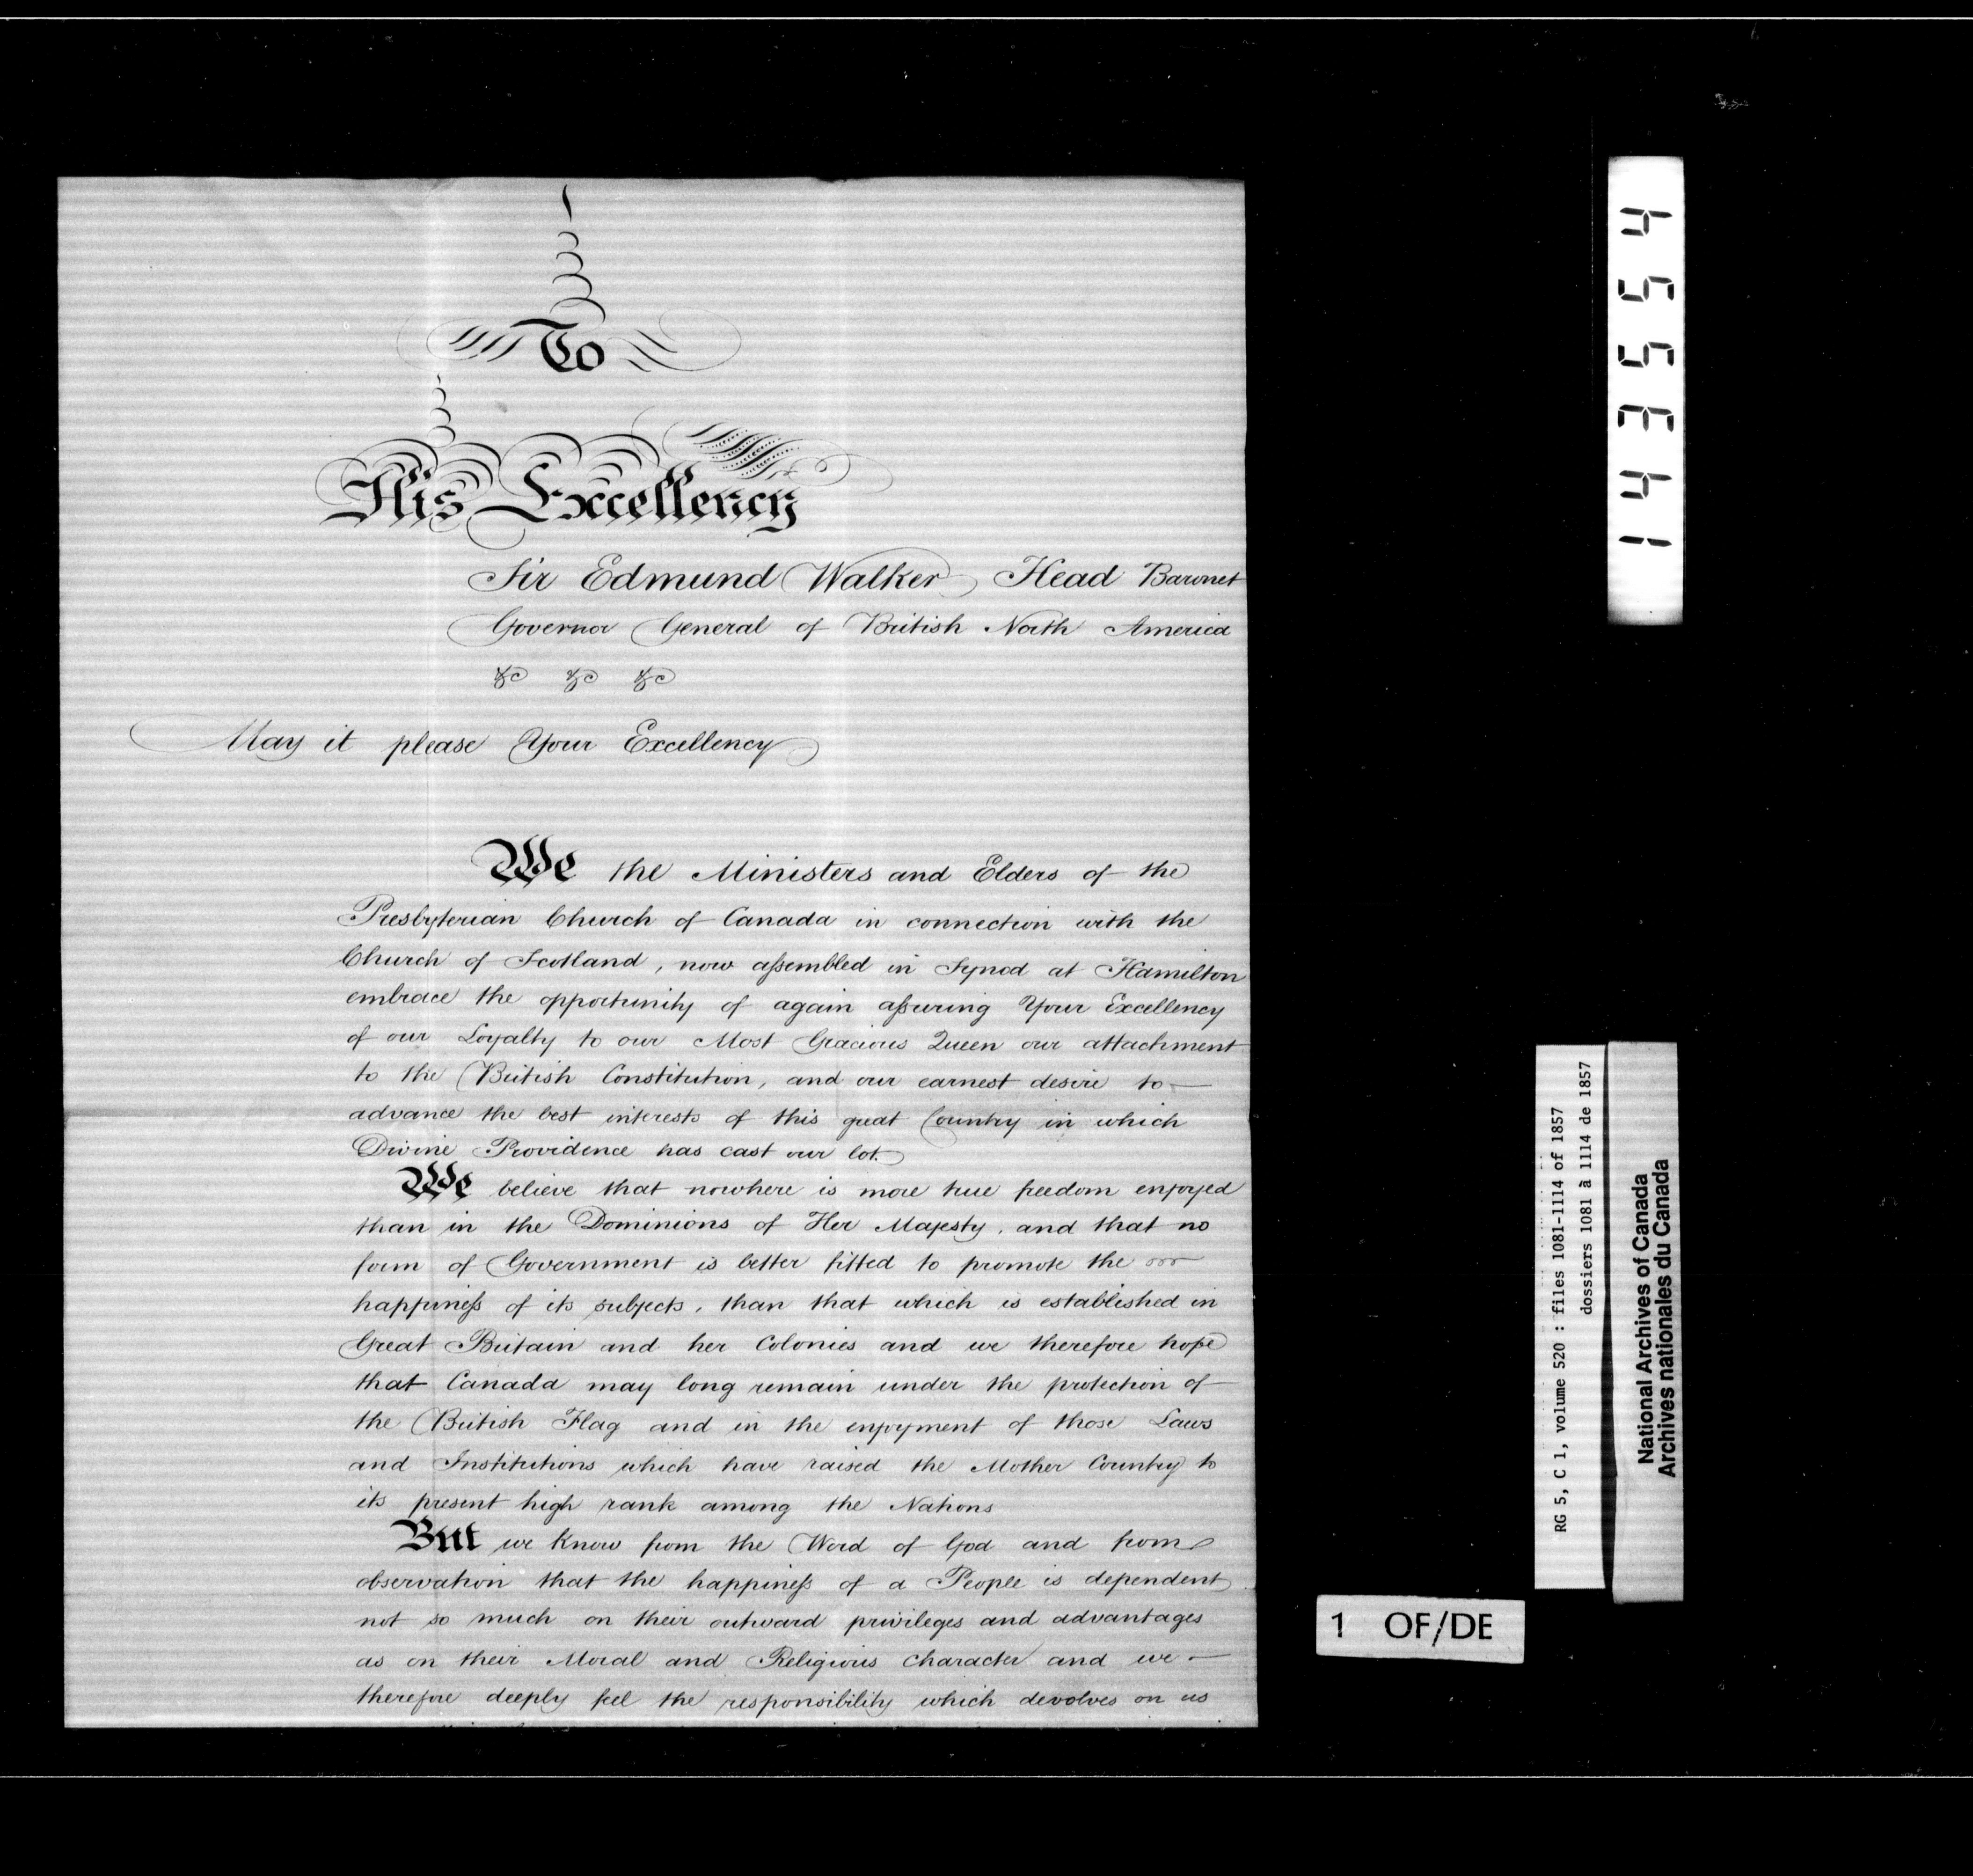 To
His Excellency
Sir Edmund Walker Head Baronet
Governor General of British North America
&c &c &c
May it please Your Excellency
We the Ministers and Elders of the
Presbyterian Church of Canada in connection with the
Church of Scotland, now assembled in Synod at Hamilton
embrace the opportunity of again assuring Your Excellency
of our Loyalty to our Most Gracious Queen our attachment
to the British Constitution, and our earnest desire to
advance the best interests of this great Country in which
Divine Providence has cast our lot.
We believe that nowhere is more true freedom enjoyed
than in the Dominions of Her Majesty, and that no
form of Government is better fitted to promote the
happiness of its subjects, than that which is established in
Great Britain and her Colonies and we therefore hope
that Canada may long remain under the protection of
the British Flag and in the enjoyment of those Laws
and Institutions which have raised the Mother Country to
its present high rank among the Nations
But we know from the Word of God and from
observation that the happiness of a People is dependent
not so much on their outward privileges and advantages
as on their Moral and Religious Character and we
therefore deeply feel the responsibility which devolves on us
143554
RG 5, C 1, volume 520 : files 1081-1114 of 1857
dossiers 1081 à 1114 de 1857
National Archives of Canada
Archives nationales du Canada
1 OF/DE